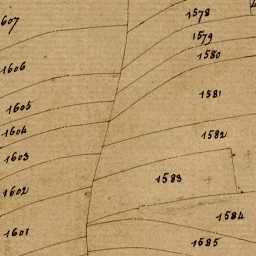 1578
607
1579
1580
1606
1581
1605
1604
1582
1603
1583
1602
1584
1601
1585